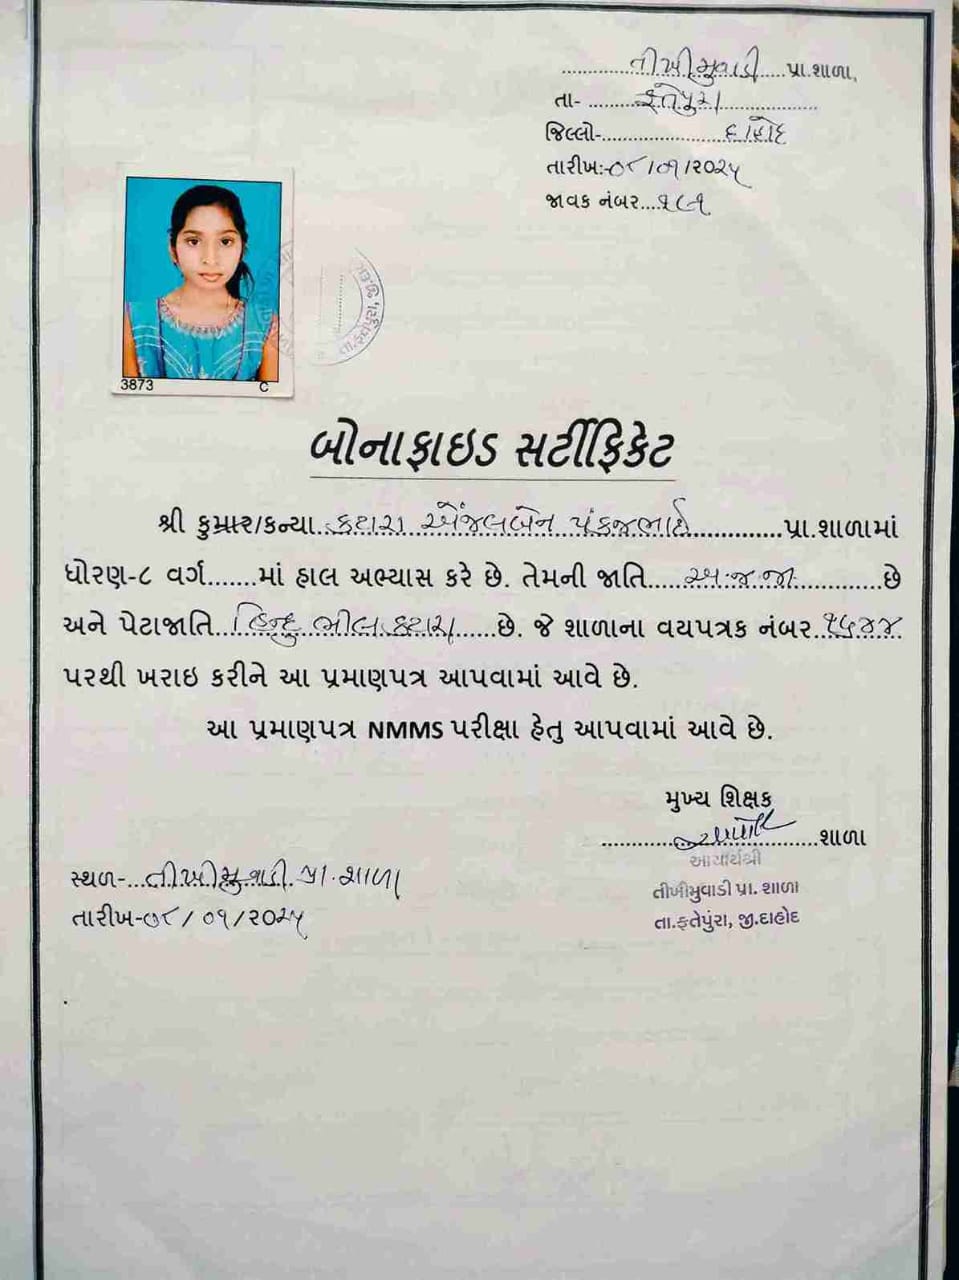 તીખીમુવાડી પ્રા.શાળા,
તા- ફતેપુરા
જિલ્લો- દાહોદ
તારીખ:-૦૮/૦૧/૨૦૨૫
જાવક નંબર....૧૮૧
તા.ફતેપુરા, જી.દાહોદ
3873 C
બોનાફાઇડ સર્ટીફિકેટ
શ્રી કુમાર/કન્યા કટારા એંજલબેન પંકજભાઈ પ્રા.શાળામાં
ધોરણ-૮ વર્ગ.......માં હાલ અભ્યાસ કરે છે. તેમની જાતિ અ.જ.જા. છે
અને પેટાજાતિ હિન્દુ ભીલ કટારા છે. જે શાળાના વયપત્રક નંબર ૧૫૪૪
પરથી ખરાઇ કરીને આ પ્રમાણપત્ર આપવામાં આવે છે.
આ પ્રમાણપત્ર NMMS પરીક્ષા હેતુ આપવામાં આવે છે.
મુખ્ય શિક્ષક
શાળા
આચાર્યશ્રી
સ્થળ- તીખીમુવાડી પ્રા.શાળા
તીખીમુવાડી પ્રા. શાળા
તારીખ-૦૮/૦૧/૨૦૨૫
તા.ફતેપુરા, જી.દાહોદ